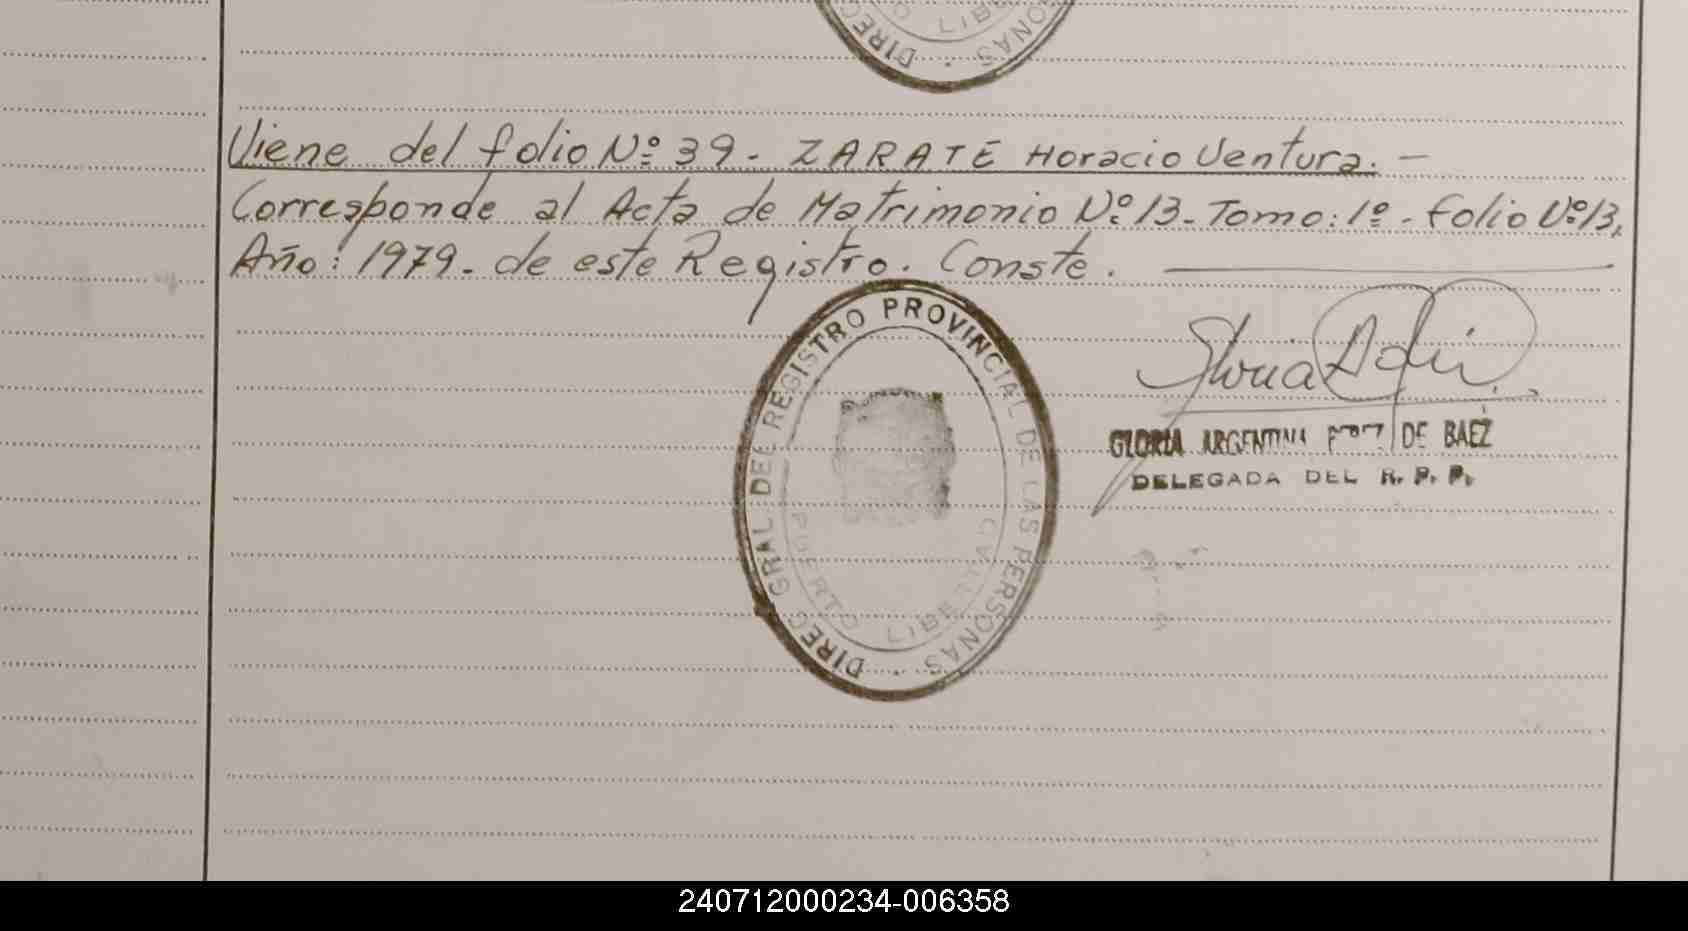 DIREC LIBE ONAS
Viene del folio Nº 39 - ZARATE Horacio Ventura. —
Corresponde al Acta de Matrimonio Nº 13 - Tomo: 1º - folio Nº 13,
Año: 1979 - de este Registro. Conste.
DIREC GRAL DEL REGISTRO PROVINCIAL DE LAS PERSONAS
PUERTO LIBERTAD
GLORIA ARGENTINA DE BAEZ
DELEGADA DEL R. P. P.
240712000234-006358